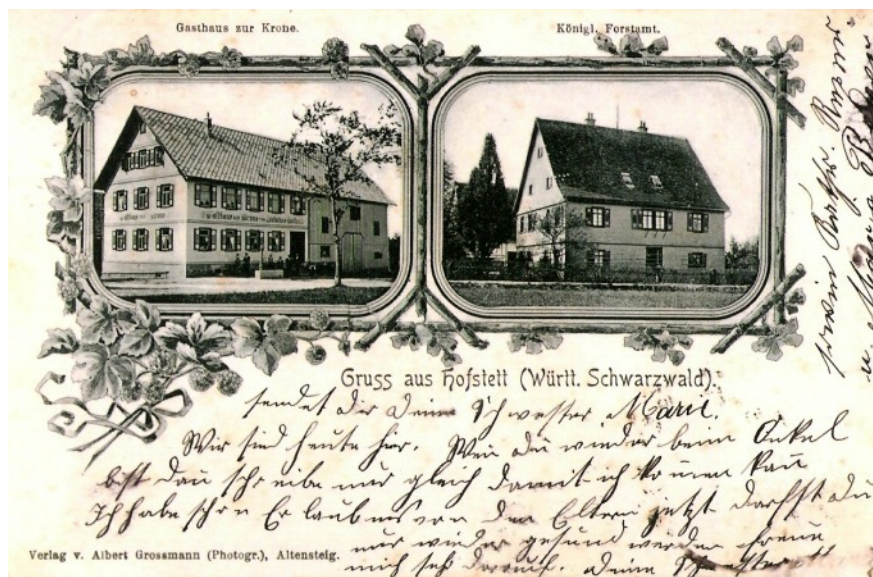 Gasthaus zur Krone.
Königl. Forstamt.
Gasthaus zur Krone
Gruss aus Hofstett (Württ. Schwarzwald).
sendet dir deine Schwester Marie.
Wir sind heute hier. Wen du wieder beim Onkel
bist dan schreibe mir gleich damit ich komen kan
Ich habe schon Erlaubnis von den Eltern jetzt darfst du
nur wieder gesund werden freue
mich sehr darauf. Deine Schwester
Verlag v. Albert Grossmann (Photogr.), Altensteig.